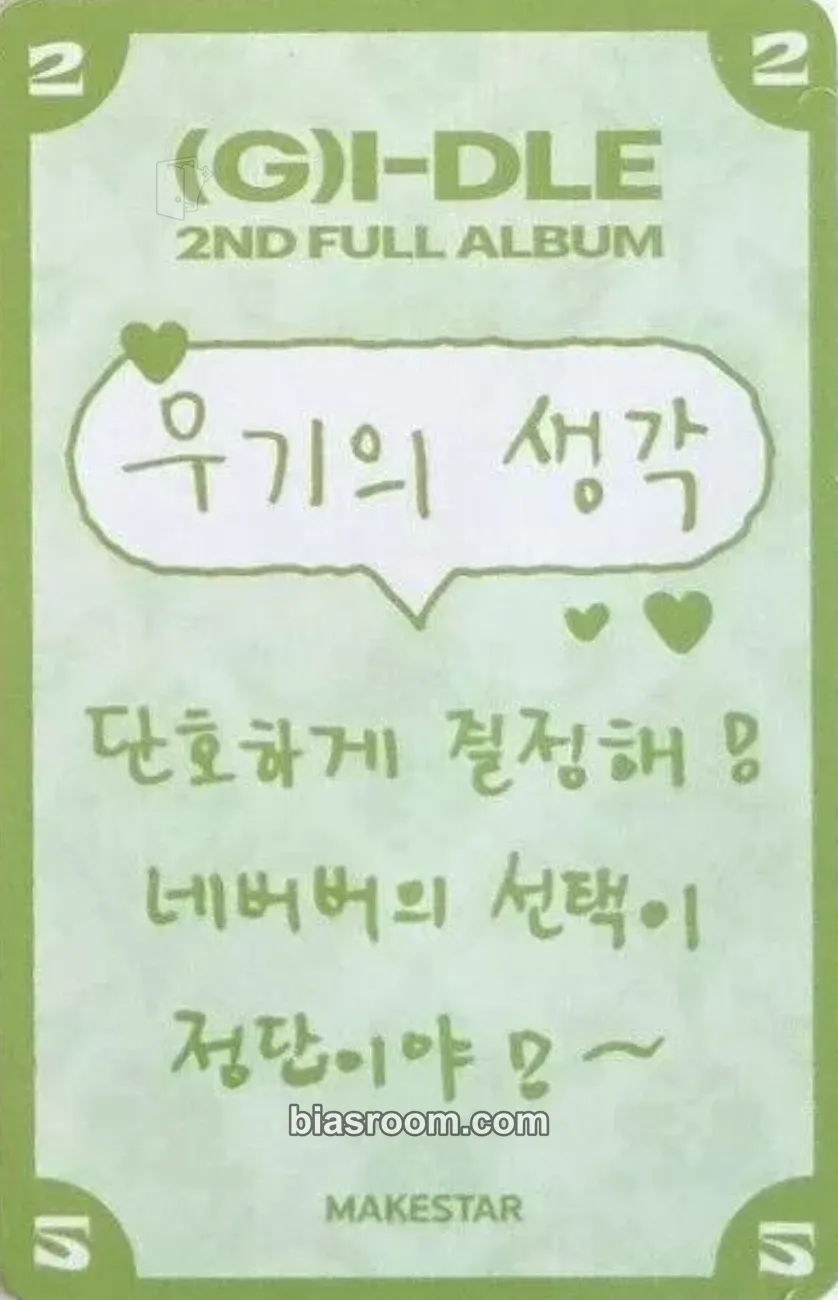 2 2
(G)I-DLE
2ND FULL ALBUM
우기의 생각
단호하게 질정해!
네버버의 선택이
정답이야!~
biasroom.com
MAKESTAR
2 2